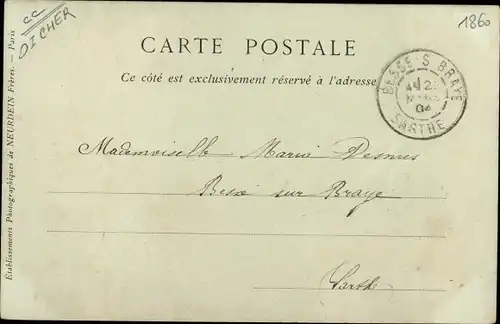 CC
DICHER
1860
CARTE POSTALE
Ce côté est exclusivement réservé à l'adresse
BESSE S BRAYE
MARS
04
SARTHE
Mademoiselle Marie Desnus
Besse sur Braye
Sarthe
Établissements Photographiques de NEURDEIN Frères. — Paris